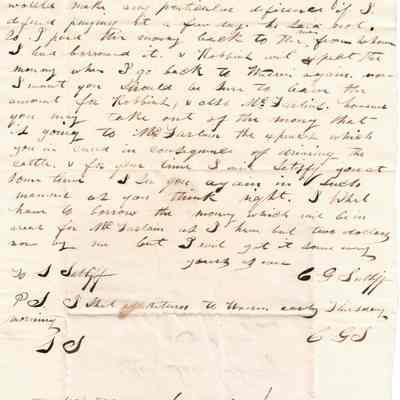 would make any particular difference if I
defered paying it a few days he said not.
So I paid the money back to the man from whom
I had borrowed it. & Robbish will get the
money when I go back to Warren again. now
I want you should be sure to leave the
amount for Robbish, & also McFarlin. however
you may take out of the money that
is going to McFarlin the expense which
you in cured in consequence of driving the
cattle. & for your time I will satisfy you at
some time I see you again in such
manner as you think right. I shall
have to borrow the money which will be in
area for McFarlain as I have but two dollars
now by me but I will get it some way
yours as ever
To J Sutliff C G Sutliff
P S I shall return to Warren early Thursday
morning
J S C G S